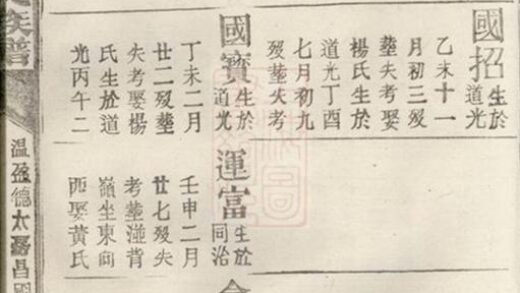 國招生於道光
乙未十一
月初三歿
塟失考娶
楊氏生於
道光丁酉
七月初九
歿塟失考
國寶生於道光
丁未二月
廿二歿塟
失考娶楊
氏生於道
光丙午二
運富生於同治
壬申二月
廿七歿失
考塟湴背
嶺坐東向
西娶黃氏
族譜
温盈德太
昌